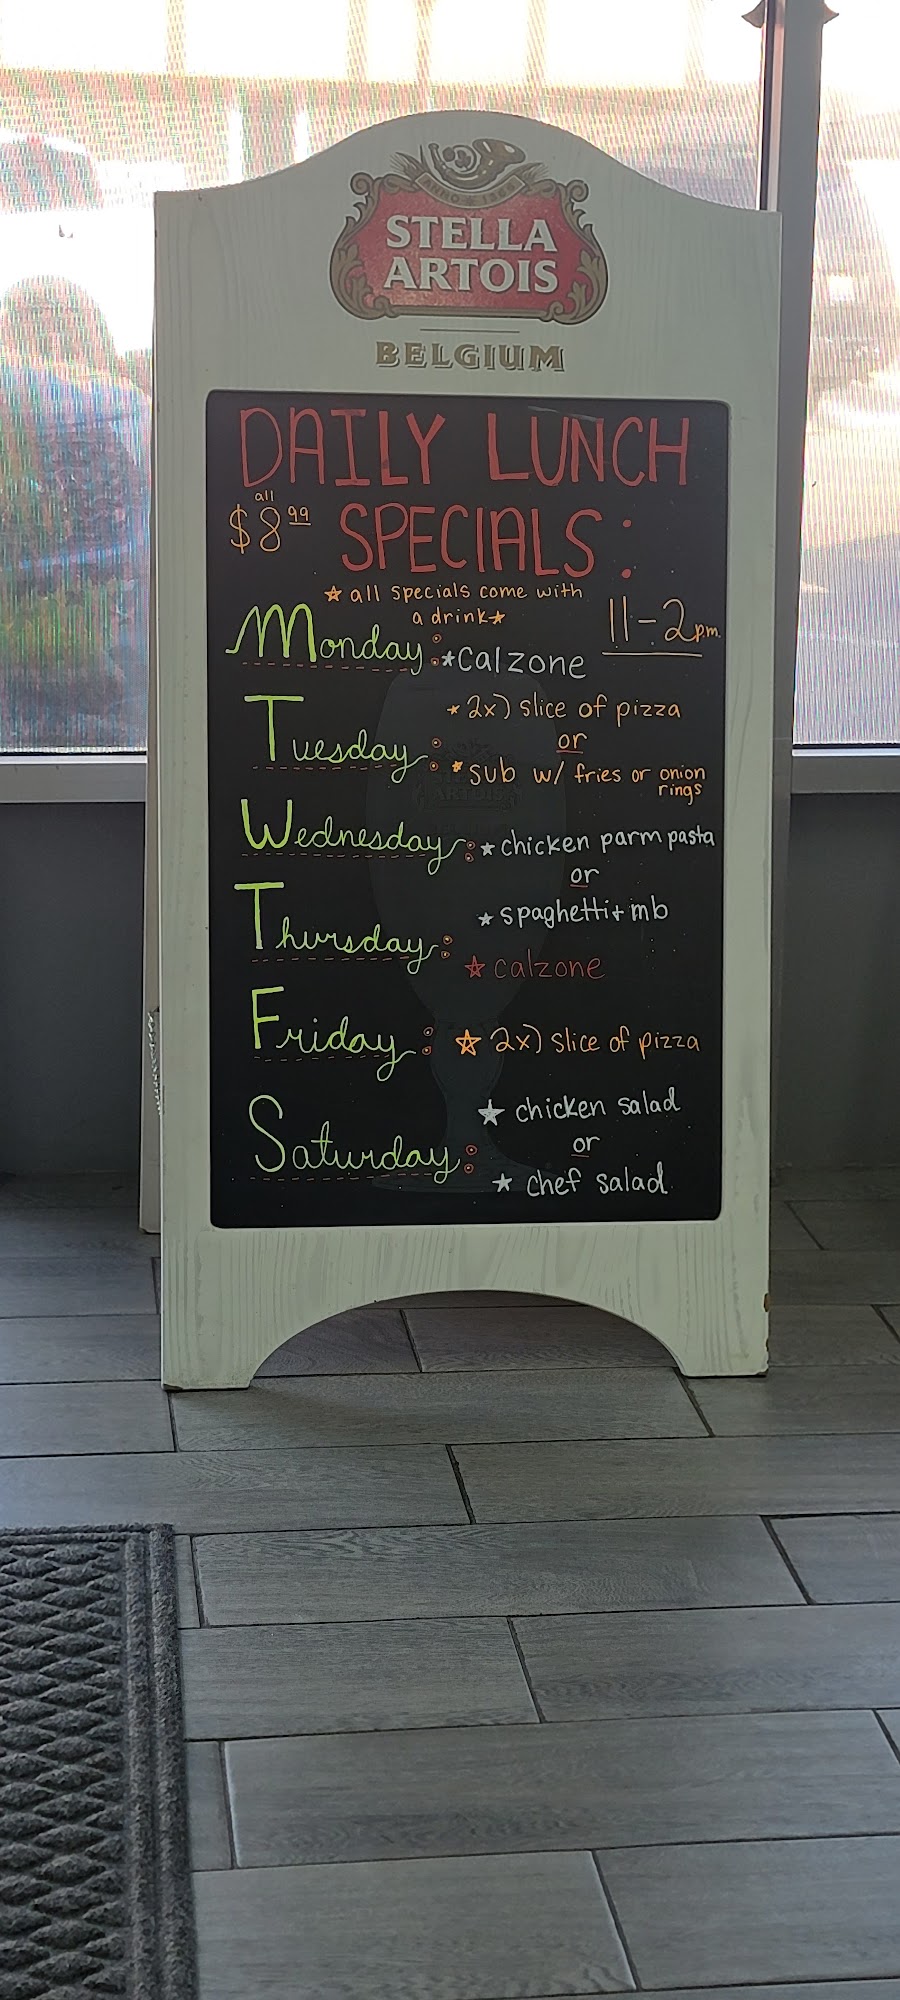 ANNO 1366
STELLA
ARTOIS
BELGIUM
DAILY LUNCH
all
$8.99 SPECIALS:
☆ all specials come with
a drink☆
11-2p.m.
Monday: ☆calzone
☆ 2x) slice of pizza
or
Tuesday: ☆sub w/ fries or onion
rings
Wednesday: ☆chicken parm pasta
or
☆spaghetti + mb
Thursday: ☆ calzone
Friday: ☆ 2x) slice of pizza
☆ chicken salad
or
Saturday: ☆ chef salad